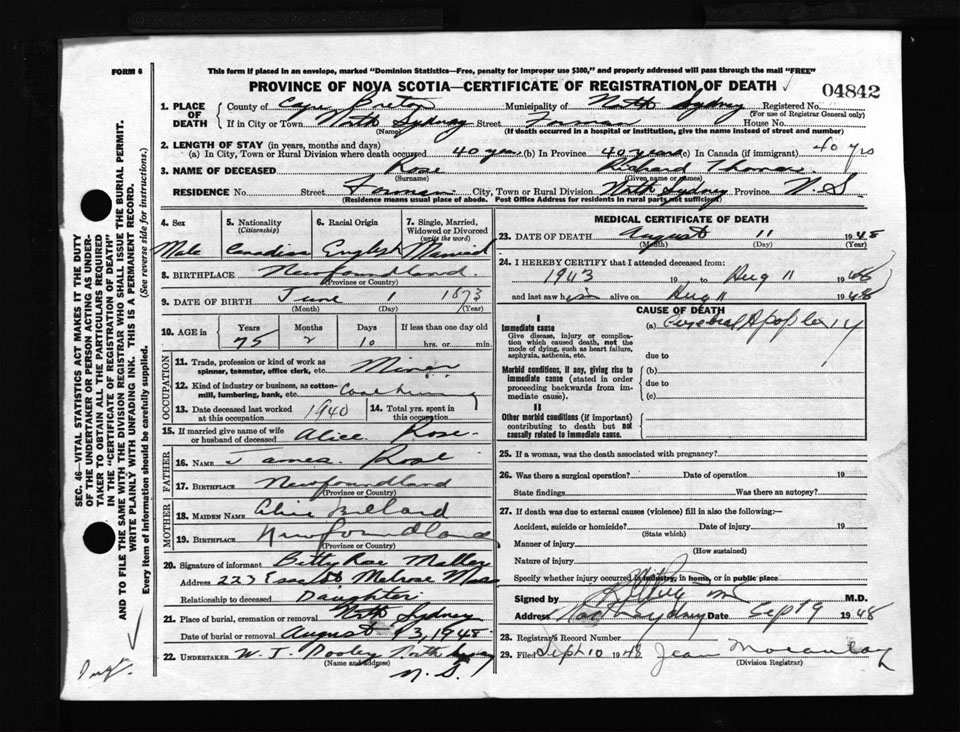 FORM 6
This form if placed in an envelope, marked "Dominion Statistics—Free, penalty for improper use $300," and properly addressed will pass through the mail "FREE"
PROVINCE OF NOVA SCOTIA—CERTIFICATE OF REGISTRATION OF DEATH
04842
1. PLACE OF DEATH
County of Cape Breton Municipality of North Sydney Registered No.
(For use of Registrar General only)
If in City or Town North Sydney Street House No.
(Name) (If death occurred in a hospital or institution, give the name instead of street and number)
2. LENGTH OF STAY (in years, months and days)
(a) In City, Town or Rural Division where death occurred 40 years (b) In Province 40 years (c) In Canada (if immigrant) 40 yrs
3. NAME OF DECEASED Rose Richard Thomas
(Surname) (Given name or names)
RESIDENCE No. Street City, Town or Rural Division North Sydney Province N. S
(Residence means usual place of abode. Post Office Address for residents in rural parts not sufficient)
4. Sex Male
5. Nationality (Citizenship) Canadian
6. Racial Origin English
7. Single, Married, Widowed or Divorced (write the word) Married
8. BIRTHPLACE Newfoundland
(Province or Country)
9. DATE OF BIRTH June 1 1873
(Month) (Day) (Year)
10. AGE in Years Months Days If less than one day old
75 2 10 hrs. or min.
OCCUPATION
11. Trade, profession or kind of work as spinner, teamster, office clerk, etc. Miner
12. Kind of industry or business, as cotton-mill, lumbering, bank, etc.
13. Date deceased last worked at this occupation 1940
14. Total yrs. spent in this occupation
15. If married give name of wife or husband of deceased Alice Rose
FATHER
16. NAME James Rose
17. BIRTHPLACE Newfoundland
(Province or Country)
MOTHER
18. MAIDEN NAME
19. BIRTHPLACE Newfoundland
(Province or Country)
20. Signature of informant Betty Rose
Address 223 Melrose Mass
Relationship to deceased Daughter
21. Place of burial, cremation or removal North Sydney
Date of burial or removal August 13, 1948
22. UNDERTAKER W. J. Dooley North Sydney
(Name and address)
N. S.
MEDICAL CERTIFICATE OF DEATH
23. DATE OF DEATH August 11 1948
(Month) (Day) (Year)
24. I HEREBY CERTIFY that I attended deceased from:
1943 19 to Aug 11 1948
and last saw him alive on Aug 11 1948
CAUSE OF DEATH
I
Immediate cause
Give disease, injury or complication which caused death, not the mode of dying, such as heart failure, asphyxia, asthenia, etc.
(a) Cerebral Apoplexy
due to
Morbid conditions, if any, giving rise to immediate cause (stated in order proceeding backwards from immediate cause).
(b)
due to
(c)
II
Other morbid conditions (if important) contributing to death but not causally related to immediate cause.
25. If a woman, was the death associated with pregnancy?
26. Was there a surgical operation? Date of operation 19
State findings Was there an autopsy?
27. If death was due to external causes (violence) fill in also the following:—
Accident, suicide or homicide? Date of injury 19
(State which)
Manner of injury
(How sustained)
Nature of injury
Specify whether injury occurred in industry, in home, or in public place
Signed by M.D.
Address North Sydney Date Sep 9 1948
28. Registrar's Record Number
29. Filed Sept 10 1948 Jean Macaulay
(Division Registrar)
SEC. 46—VITAL STATISTICS ACT MAKES IT THE DUTY OF THE UNDERTAKER OR PERSON ACTING AS UNDERTAKER TO OBTAIN ALL THE PARTICULARS REQUIRED IN THE "CERTIFICATE OF REGISTRATION OF DEATH" AND TO FILE THE SAME WITH THE DIVISION REGISTRAR WHO SHALL ISSUE THE BURIAL PERMIT.
WRITE PLAINLY WITH UNFADING INK. THIS IS A PERMANENT RECORD.
Every item of information should be carefully supplied. (See reverse side for instructions.)